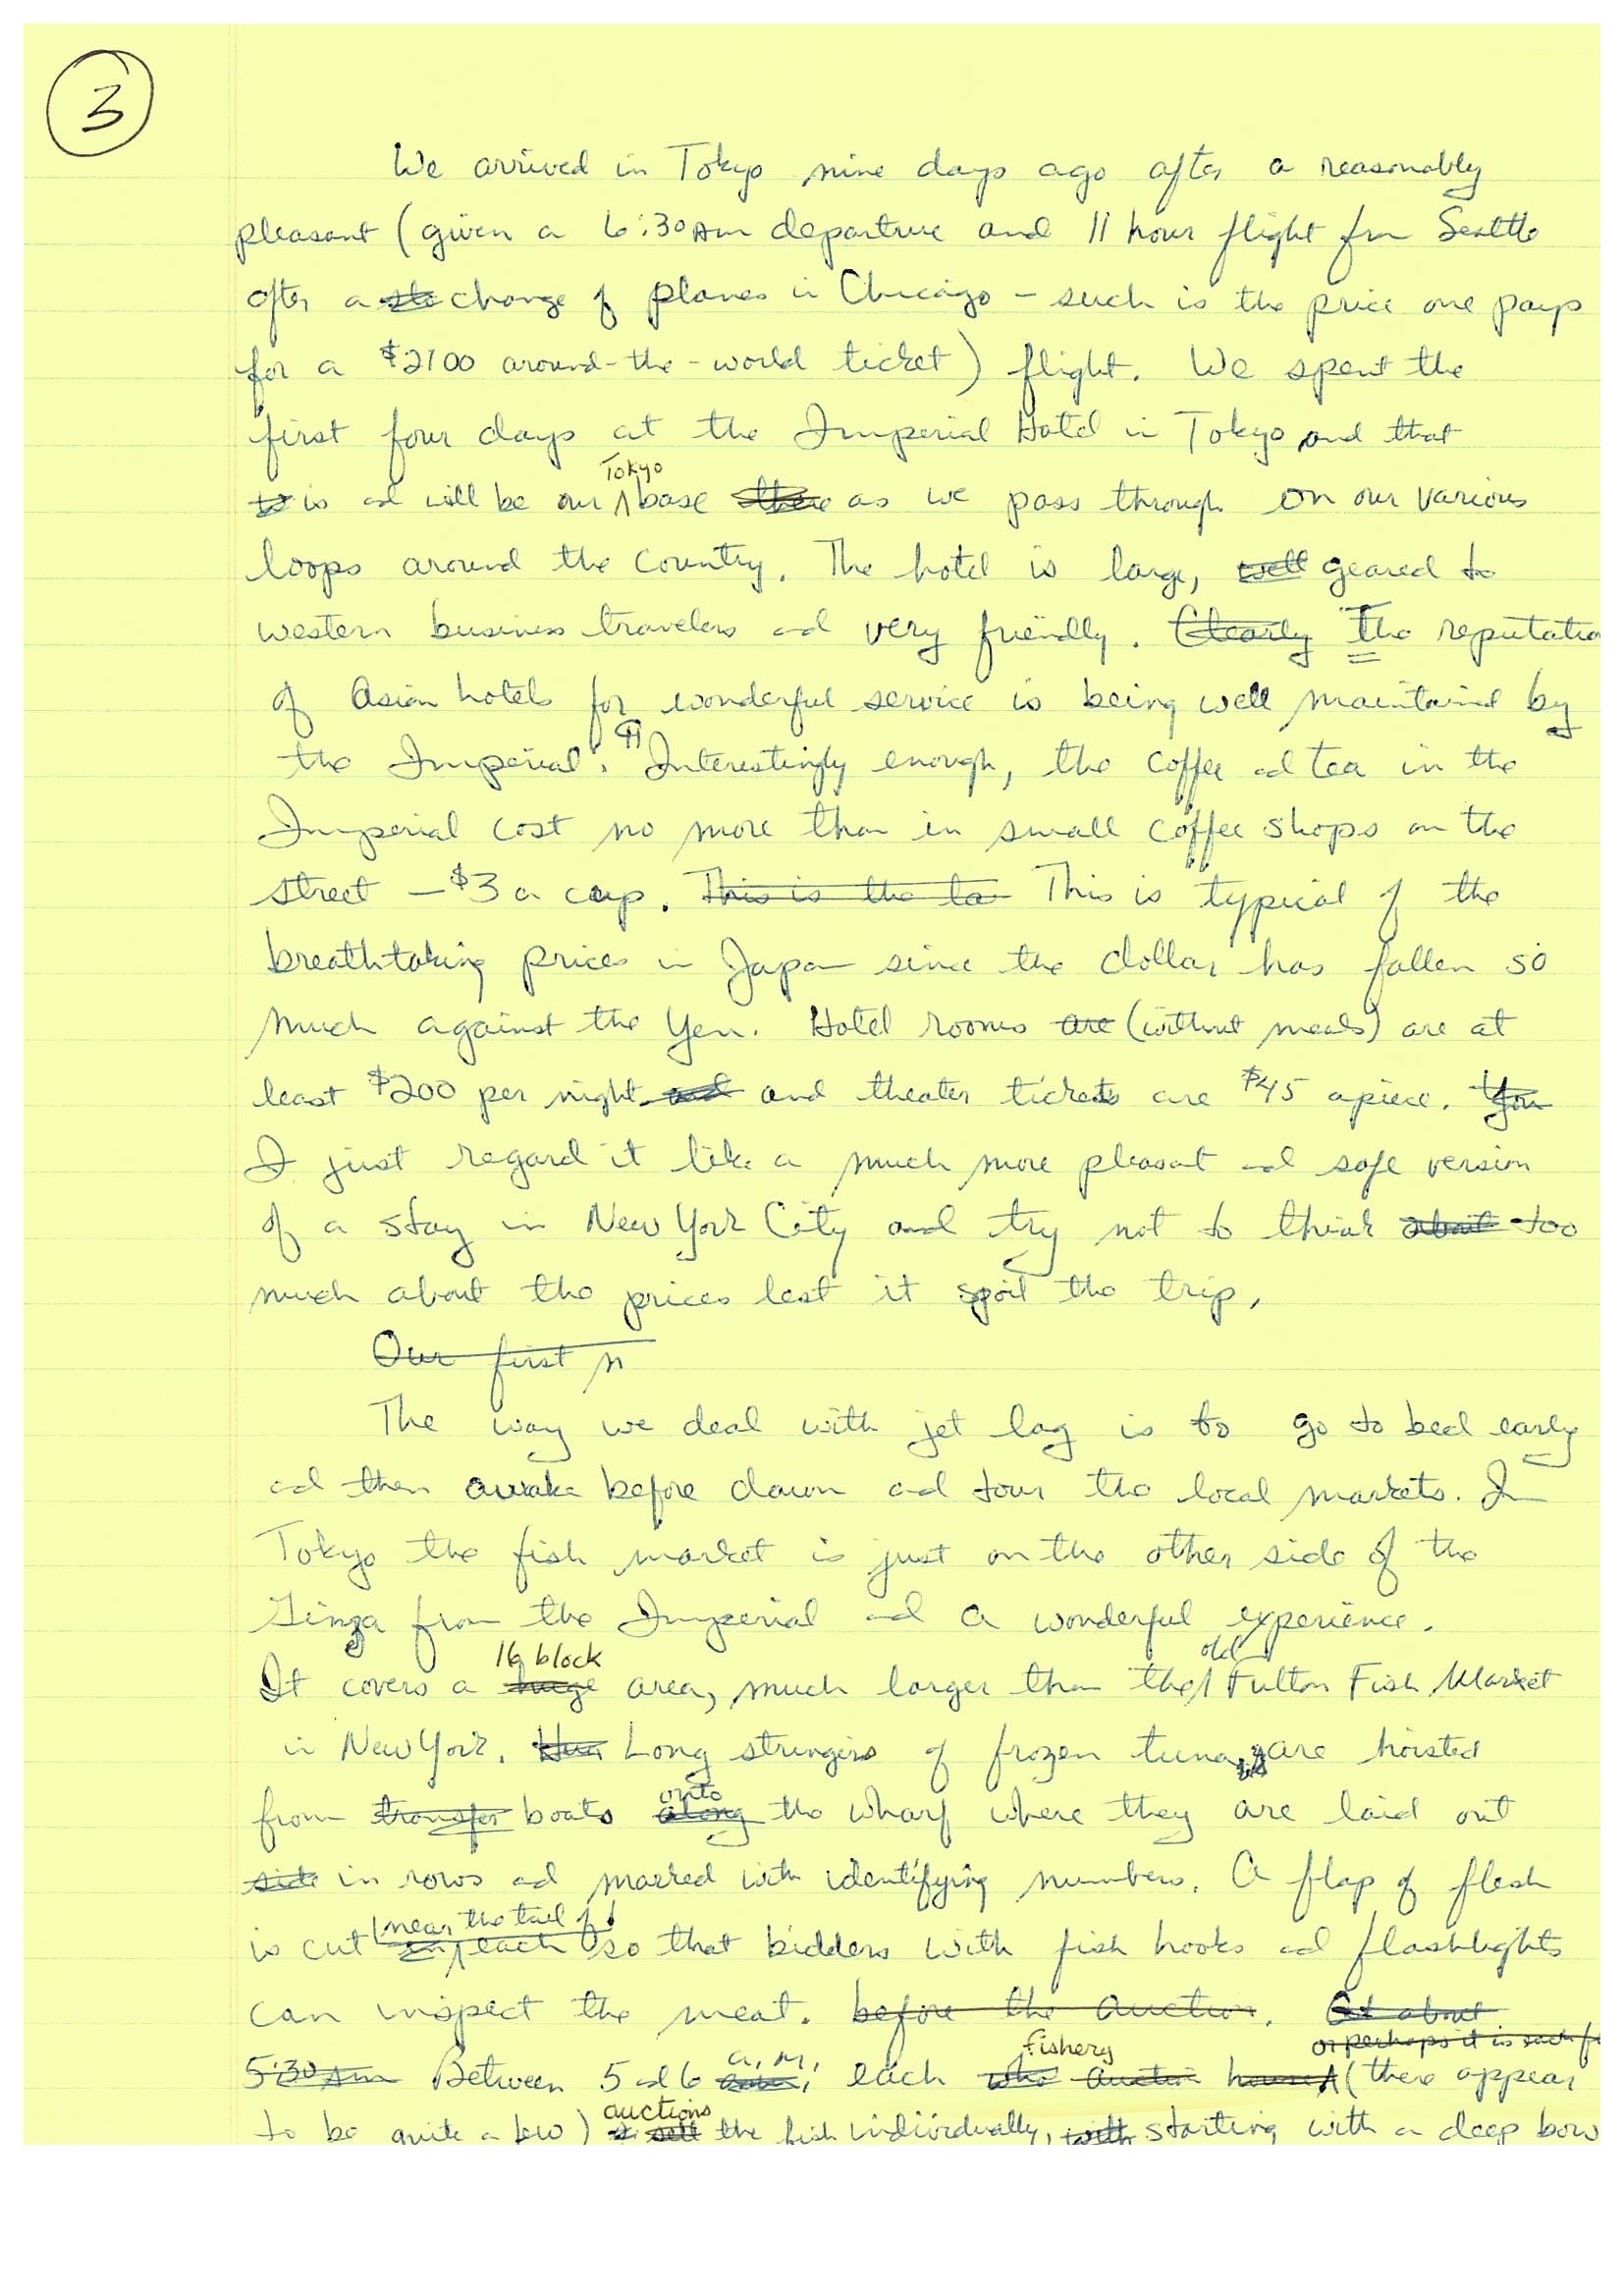 3
We arrived in Tokyo nine days ago after a reasonably
pleasant (given a 6:30 Am departure and 11 hour flight from Seattle
after a change of planes in Chicago – such is the price one pays
for a $2100 around-the-world ticket) flight. We spent the
first four days at the Imperial Hotel in Tokyo and that
Tokyo
is and will be our base there as we pass through on our various
loops around the country. The hotel is large, well geared to
western business travelers and very friendly. Clearly The reputatio
of Asian hotels for wonderful service is being well maintained by
the Imperial. ¶ Interestingly enough, the coffee and tea in the
Imperial cost no more than in small coffee shops on the
street – $3 a cup. This is the ta This is typical of the
breathtaking prices in Japan since the dollar has fallen so
much against the Yen. Hotel rooms are (without meals) are at
least $200 per night and and theater tickets are $45 apiece. You
I just regard it like a much more pleasant and safe version
of a stay in New York City and try not to think about too
much about the prices lest it spoil the trip.
Our first n
The way we deal with jet lag is to go to bed early
and then awake before dawn and tour the local markets. In
Tokyo the fish market is just on the other side of the
Ginza from the Imperial and a wonderful experience.
16 block old
It covers a huge area, much larger than the Fulton Fish Market
in New York. Long stringers of frozen tuna are hoisted
onto
from transfer boats along the wharf where they are laid out
side in rows and marked with identifying numbers. A flap of flesh
near the tail of
is cut on each so that bidders with fish hooks and flashlights
can inspect the meat. before the auction. At about
or perhaps it is each fi
a.m. fishery
5:30 Am Between 5 and 6 each who auction houses (there appear
auctions
to be quite a few) sell the fish individually, with starting with a deep bow